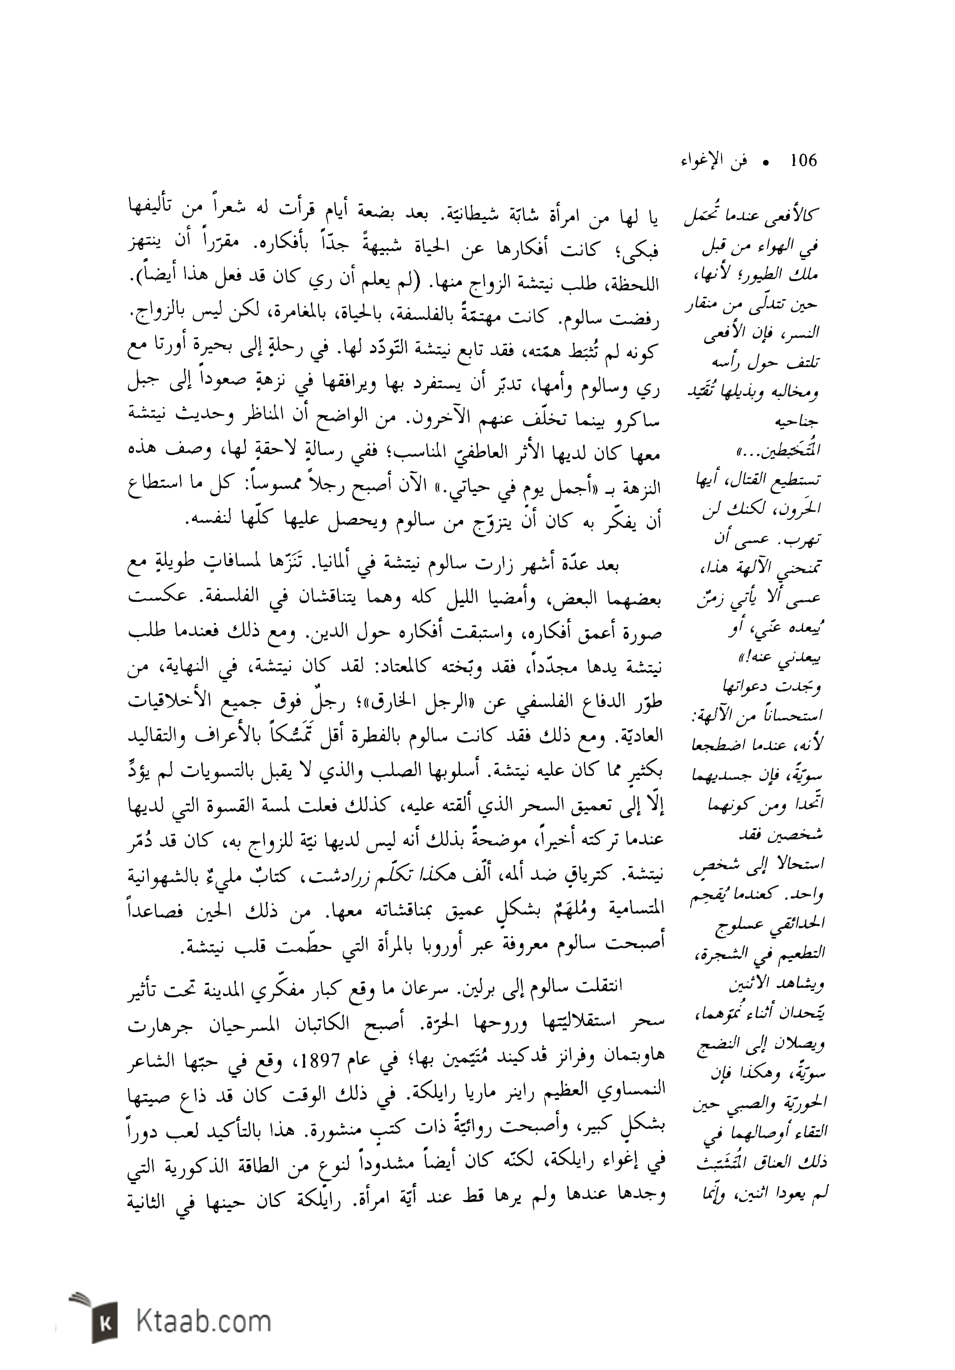 106 • فن الإغواء
كالأفعى عندما تُحمَل
في الهواء من قبل
ملك الطيور؛ لأنها،
حين تتدلّى من منقار
النسر، فإن الأفعى
تلتف حول رأسه
ومخالبه وبذيلها تُقَيّد
جناحيه
المُتَخَبّطين...»
تستطيع القتال، أيها
الحَرون، لكنك لن
تهرب. عسى أن
تمنحني الآلهة هذا،
عسى ألا يأتي زمنٌ
يُبعده عنّي، أو
يبعدني عنه!»
وجَدت دعواتها
استحساناً من الآلهة:
لأنه، عندما اضطجعا
سويّةً، فإن جسديهما
اتّحدا ومن كونهما
شخصين فقد
استحالا إلى شخصٍ
واحد. كعندما يُقحِم
الحدائقي عسلوج
التطعيم في الشجرة،
ويشاهد الاثنين
يتّحدان أثناء نُموّهما،
ويصلان إلى النضج
سويّةً، وهكذا فإن
الحوريّة والصبي حين
التقاء أوصالهما في
ذلك العناق المُتَشَبّث
لم يعودا اثنين، وإنّما
يا لها من امرأة شابّة شيطانيّة. بعد بضعة أيام قرأت له شعراً من تأليفها
فبكى؛ كانت أفكارها عن الحياة شبيهةً جدّاً بأفكاره. مقرّراً أن ينتهز
اللحظة، طلب نيتشة الزواج منها. (لم يعلم أن ري كان قد فعل هذا أيضاً).
رفضت سالوم. كانت مهتمّةً بالفلسفة، بالحياة، بالمغامرة، لكن ليس بالزواج.
كونه لم تُثبَط همّته، فقد تابع نيتشة التّودّد لها. في رحلةٍ إلى بحيرة أورتا مع
ري وسالوم وأمها، تدبّر أن يستفرد بها ويرافقها في نزهةٍ صعوداً إلى جبل
ساكرو بينما تخلّف عنهم الآخرون. من الواضح أن المناظر وحديث نيتشة
معها كان لديها الأثر العاطفيّ المناسب؛ ففي رسالةٍ لاحقةٍ لها، وصف هذه
النزهة بـ «أجمل يومٍ في حياتي.» الآن أصبح رجلاً ممسوساً: كل ما استطاع
أن يفكّر به كان أن يتزوّج من سالوم ويحصل عليها كلّها لنفسه.
بعد عدّة أشهر زارت سالوم نيتشة في ألمانيا. تَنَزّها لمسافاتٍ طويلةٍ مع
بعضهما البعض، وأمضيا الليل كله وهما يتناقشان في الفلسفة. عكست
صورة أعمق أفكاره، واستبقت أفكاره حول الدين. ومع ذلك فعندما طلب
نيتشة يدها مجدّداً، فقد وبّخته كالمعتاد: لقد كان نيتشة، في النهاية، من
طوّر الدفاع الفلسفي عن «الرجل الخارق»؛ رجلٌ فوق جميع الأخلاقيات
العاديّة. ومع ذلك فقد كانت سالوم بالفطرة أقل تَمَسُّكاً بالأعراف والتقاليد
بكثيرٍ مما كان عليه نيتشة. أسلوبها الصلب والذي لا يقبل بالتسويات لم يؤدِّ
إلّا إلى تعميق السحر الذي ألقته عليه، كذلك فعلت لمسة القسوة التي لديها
عندما تركته أخيراً، موضحةً بذلك أنه ليس لديها نيّة للزواج به، كان قد دُمّر
نيتشة. كترياقٍ ضد ألمه، ألّف هكذا تكلّم زرادشت، كتابٌ مليءٌ بالشهوانية
المتسامية ومُلهَمٌ بشكلٍ عميق بمناقشاته معها. من ذلك الحين فصاعداً
أصبحت سالوم معروفة عبر أوروبا بالمرأة التي حطّمت قلب نيتشة.
انتقلت سالوم إلى برلين. سرعان ما وقع كبار مفكّري المدينة تحت تأثير
سحر استقلاليّتها وروحها الحرّة. أصبح الكاتبان المسرحيان جرهارت
هاوبتمان وفرانز ڤدكيند مُتَيّمين بها؛ في عام 1897، وقع في حبّها الشاعر
النمساوي العظيم راينر ماريا رايلكة. في ذلك الوقت كان قد ذاع صيتها
بشكلٍ كبير، وأصبحت روائيّةً ذات كتبٍ منشورة. هذا بالتأكيد لعب دوراً
في إغواء رايلكة، لكنّه كان أيضاً مشدوداً لنوعٍ من الطاقة الذكورية التي
وجدها عندها ولم يرها قط عند أيّة امرأة. رايلكة كان حينها في الثانية
K Ktaab.com